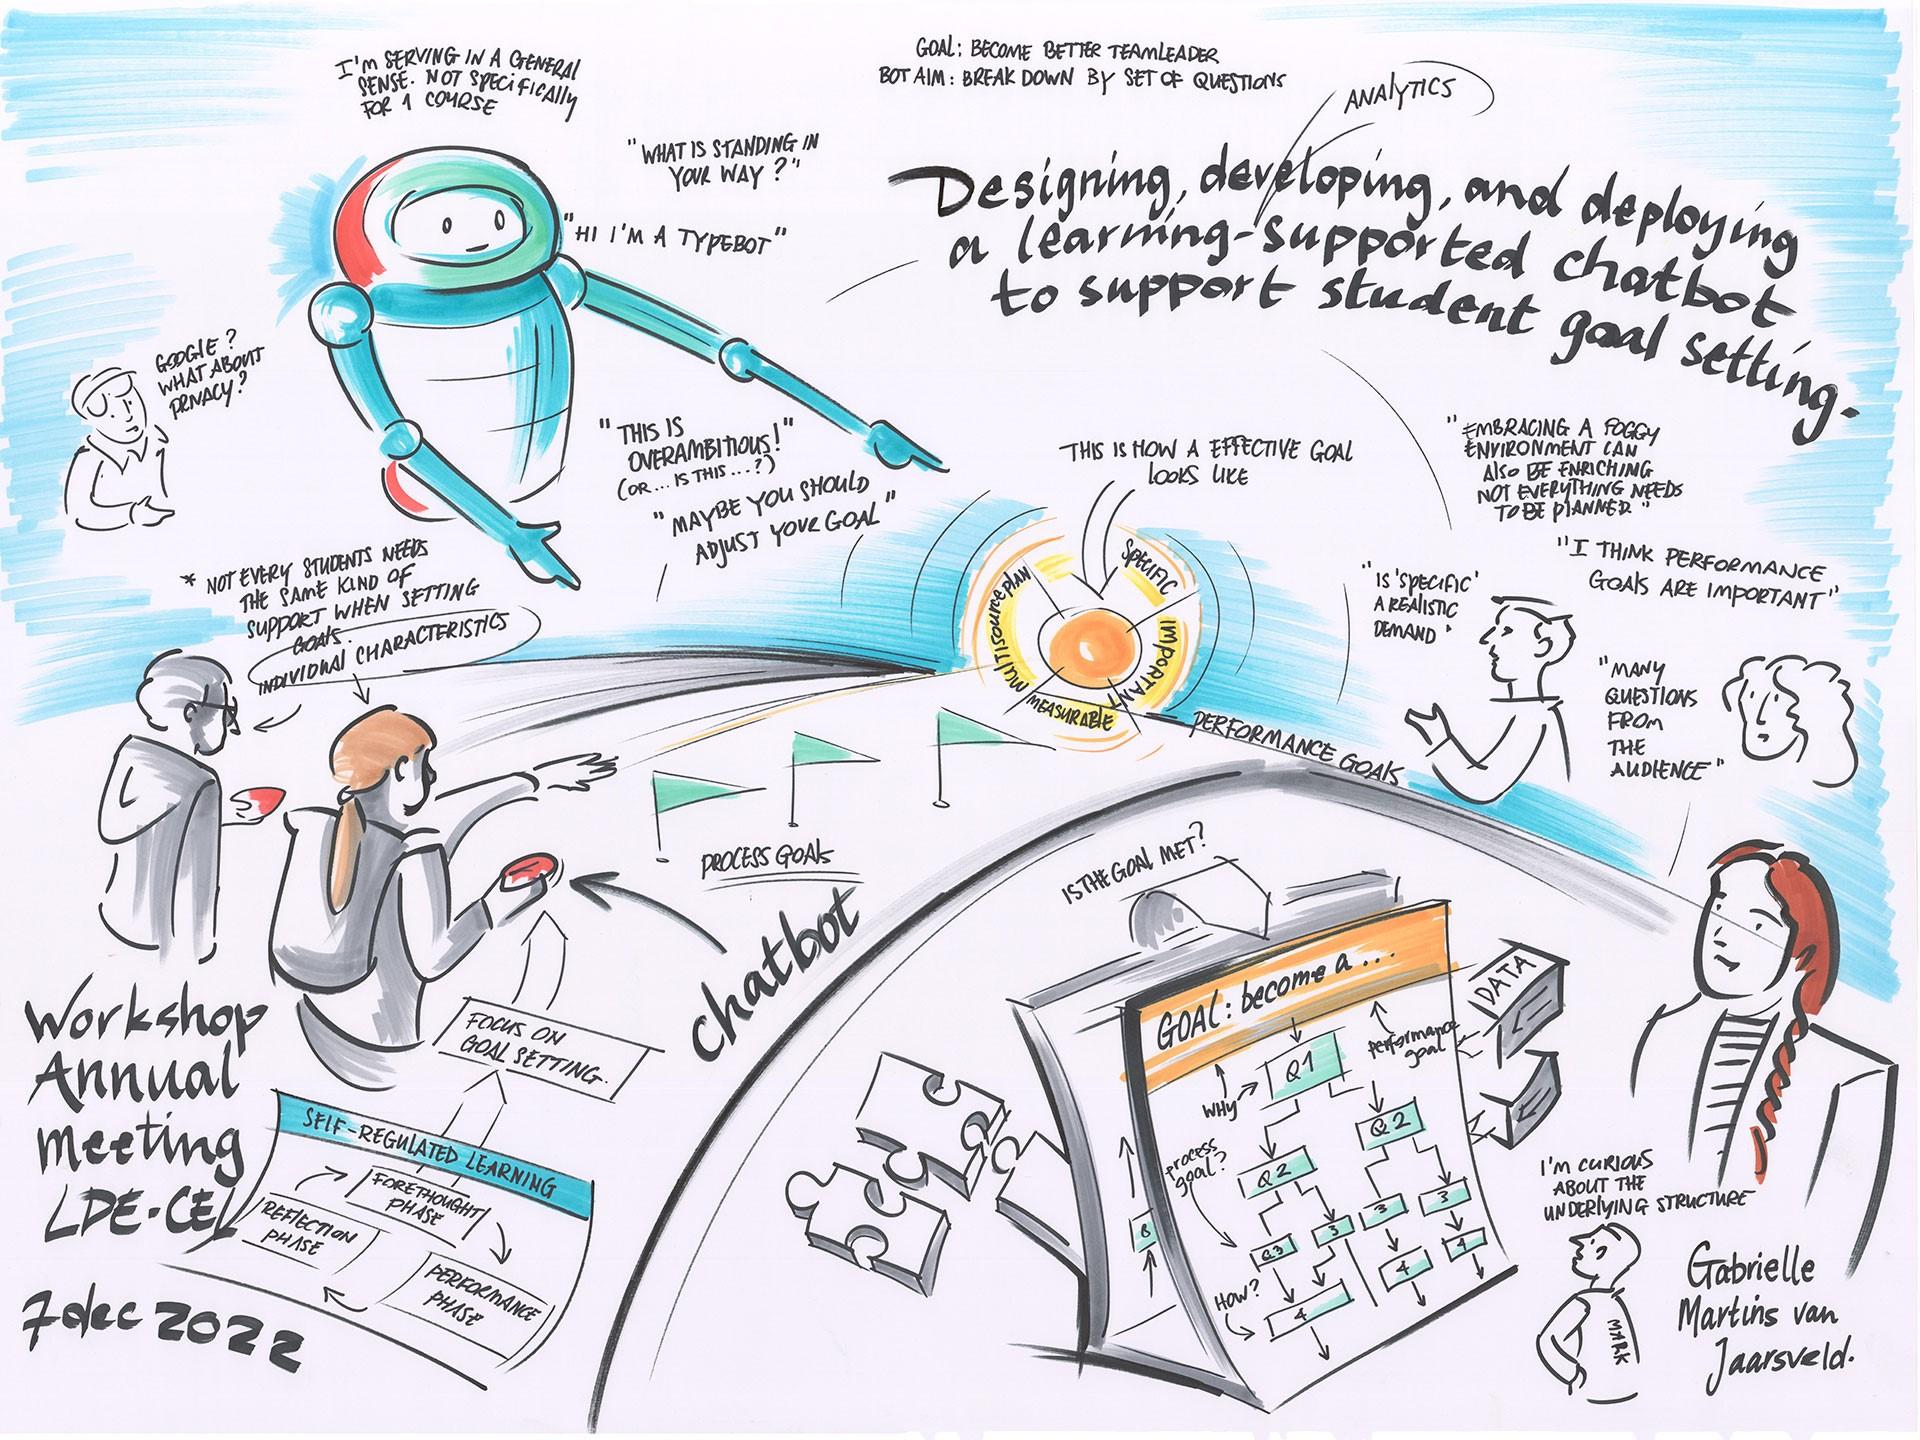 I'M SERVING IN A GENERAL
SENSE. NOT SPECIFICALLY
FOR 1 COURSE
GOAL: BECOME BETTER TEAMLEADER
BOT AIM: BREAK DOWN BY SET OF QUESTIONS
ANALYTICS
"WHAT IS STANDING IN
YOUR WAY?"
"HI I'M A TYPEBOT"
Designing, developing, and deploying
a learning-supported chatbot
to support student goal setting.
GOOGLE?
WHAT ABOUT
PRIVACY?
"THIS IS
OVERAMBITIOUS!"
(OR... IS THIS...?)
"MAYBE YOU SHOULD
ADJUST YOUR GOAL"
THIS IS HOW A EFFECTIVE GOAL
LOOKS LIKE
"EMBRACING A FOGGY
ENVIRONMENT CAN
ALSO BE ENRICHING
NOT EVERYTHING NEEDS
TO BE PLANNED"
"I THINK PERFORMANCE
GOALS ARE IMPORTANT"
"IS 'SPECIFIC'
A REALISTIC
DEMAND"
"MANY
QUESTIONS
FROM
THE
AUDIENCE"
* NOT EVERY STUDENTS NEEDS
THE SAME KIND OF
SUPPORT WHEN SETTING
GOALS.
INDIVIDUAL CHARACTERISTICS
SPECIFIC
IMPORTANT
MEASURABLE
MULTISOURCE PLAN
PERFORMANCE GOALS
PROCESS GOALS
chatbot
IS THE GOAL MET?
Workshop
Annual
Meeting
LDE-CEL
7 dec 2022
FOCUS ON
GOAL SETTING.
SELF-REGULATED LEARNING
FORETHOUGHT
PHASE
REFLECTION
PHASE
PERFORMANCE
PHASE
GOAL: become a ...
performance
goal
WHY
Q1
Q2
Q2
process
goal?
Q3
3
3
3
HOW?
4
4
4
8
DATA
I'M CURIOUS
ABOUT THE
UNDERLYING STRUCTURE
MARK
Gabrielle
Martins van
Jaarsveld.